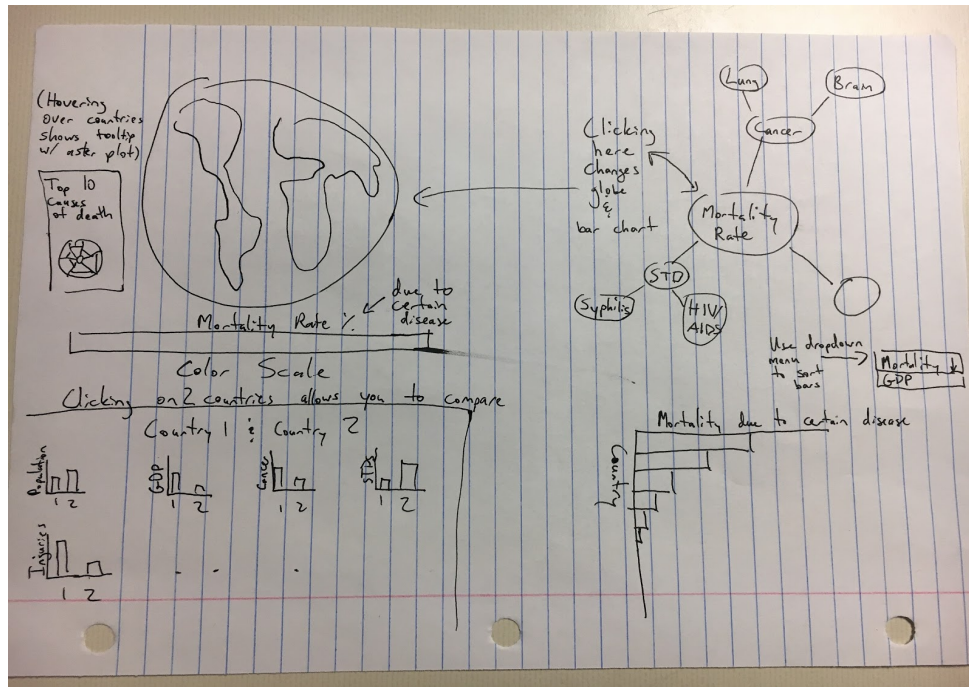 (Hovering
over countries
shows tooltip
w/ aster plot)
Top 10
causes
of death
Mortality Rate %
due to
certain
disease
Color Scale
Clicking on 2 countries allows you to compare
Country 1 & Country 2
Population
1 2
GDP
1 2
Cancer
1 2
STD
1 2
Injuries
1 2
Clicking
here
changes
globe
&
bar chart
Lung
Brain
Cancer
Mortality
Rate
STD
Syphilis
HIV/
AIDS
Use dropdown
menu
to sort
bars
Mortality ↓
GDP
Mortality due to certain disease
Country